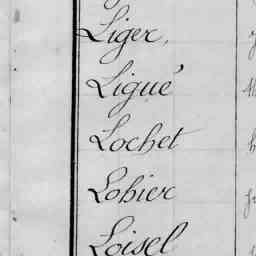 Liger,
Ligué
Lochet
Lohier
Loisel